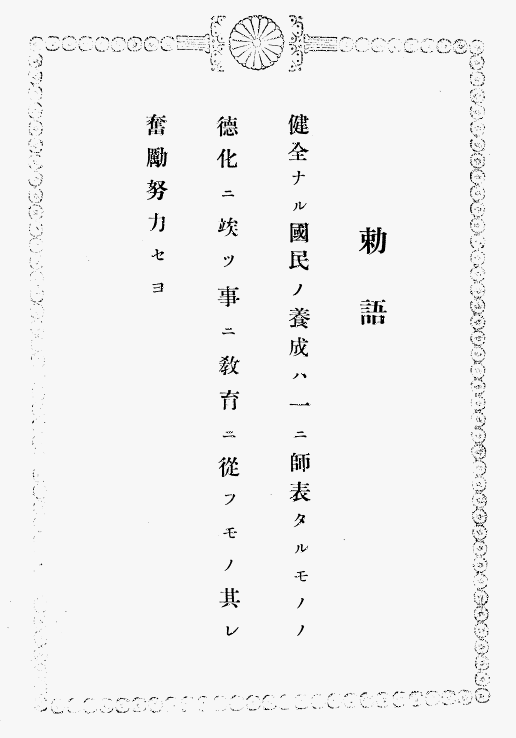 勅語
健全ナル國民ノ養成ハ一ニ師表タルモノノ
德化ニ竢ツ事ニ敎育ニ從フモノ其レ
奮勵努力セヨ